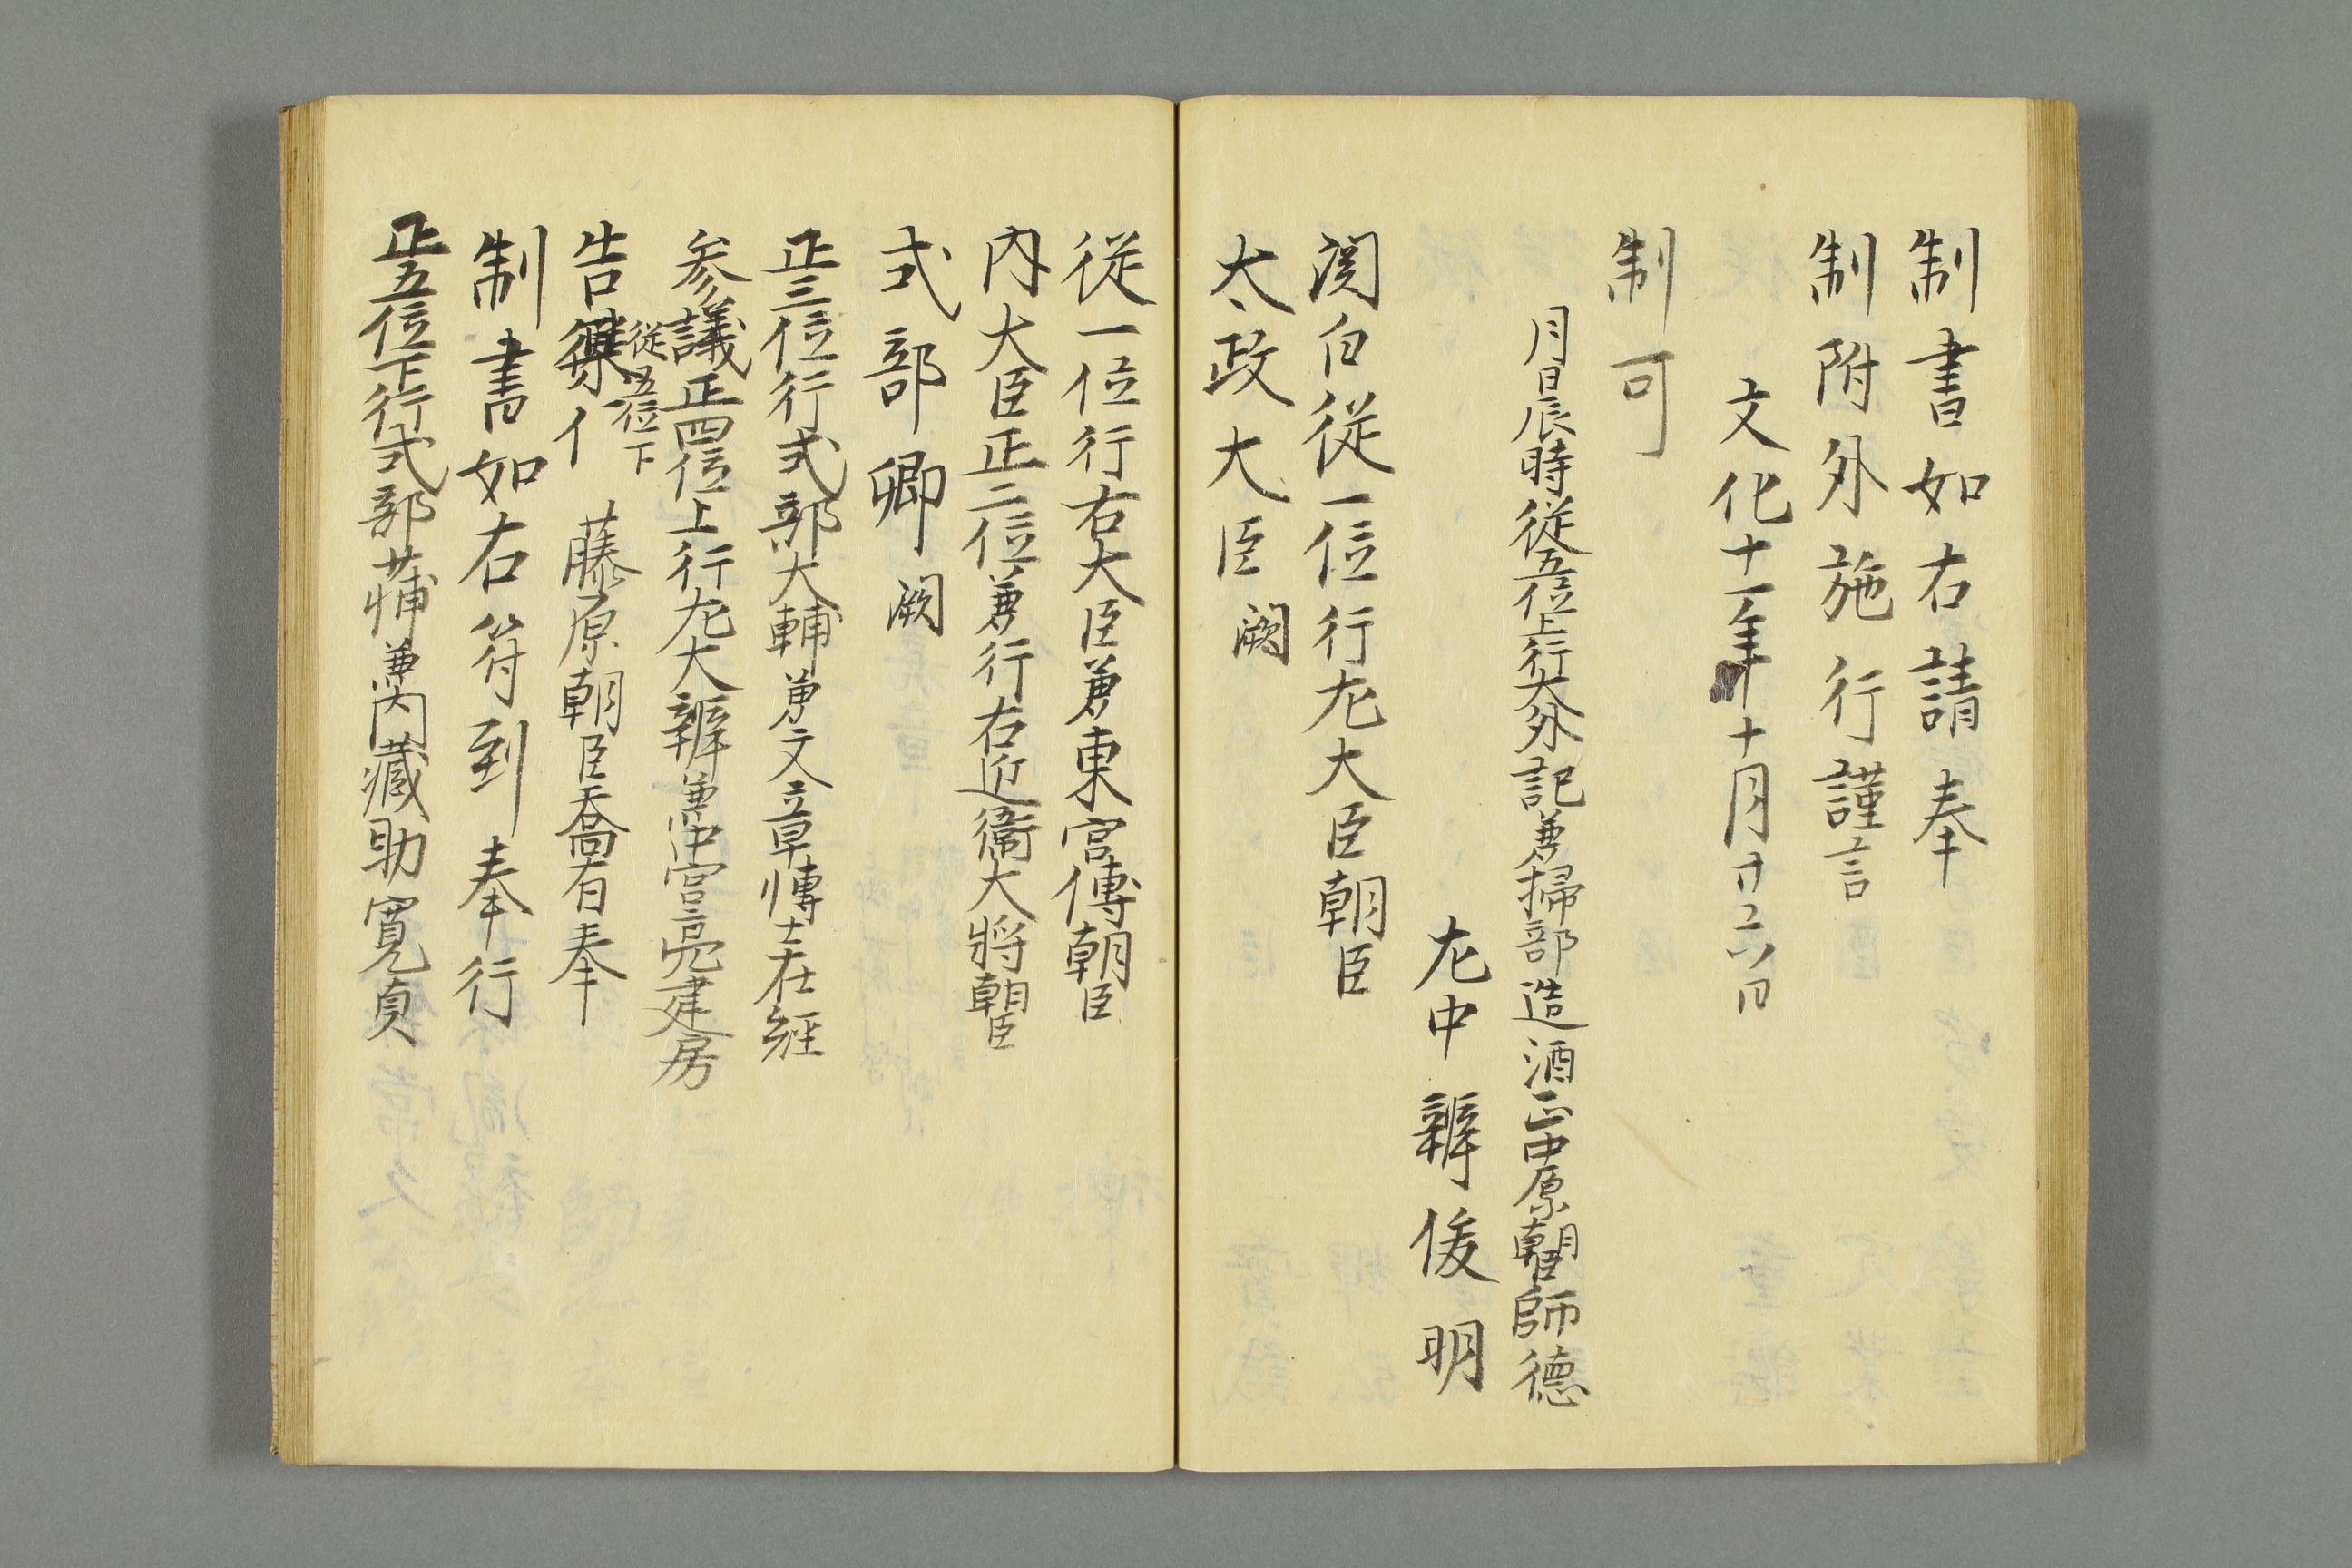 制書如右請奉
制附外施行謹言
文化十一年十月廿六日
制可
月日辰時従五位上行大外記兼掃部造酒正中原朝臣師徳
左中辨俊明
関白従一位行左大臣朝臣
太政大臣闕
従一位行右大臣兼東宮傅朝臣
内大臣正二位兼行右近衞大将朝臣
式部卿闕
正三位行式部大輔兼文章博士在經
参議正四位上行左大辨兼中宮亮建房
告従五位下藤原朝臣喬有奉
制書如右符到奉行
正五位下行式部少輔兼内蔵助寛貞